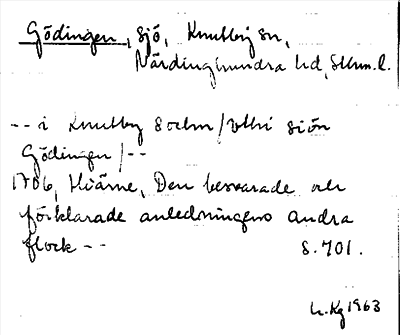 Gödingen, sjö, Knutby sn,
Närdinghundra hd, Sthm.l.
-- i Knutby Sochn/uthi siön
Gödingen/--
1706, Hiärne, Den besvarade och
förklarade anledningens andra
flock -- s. 701.
1963